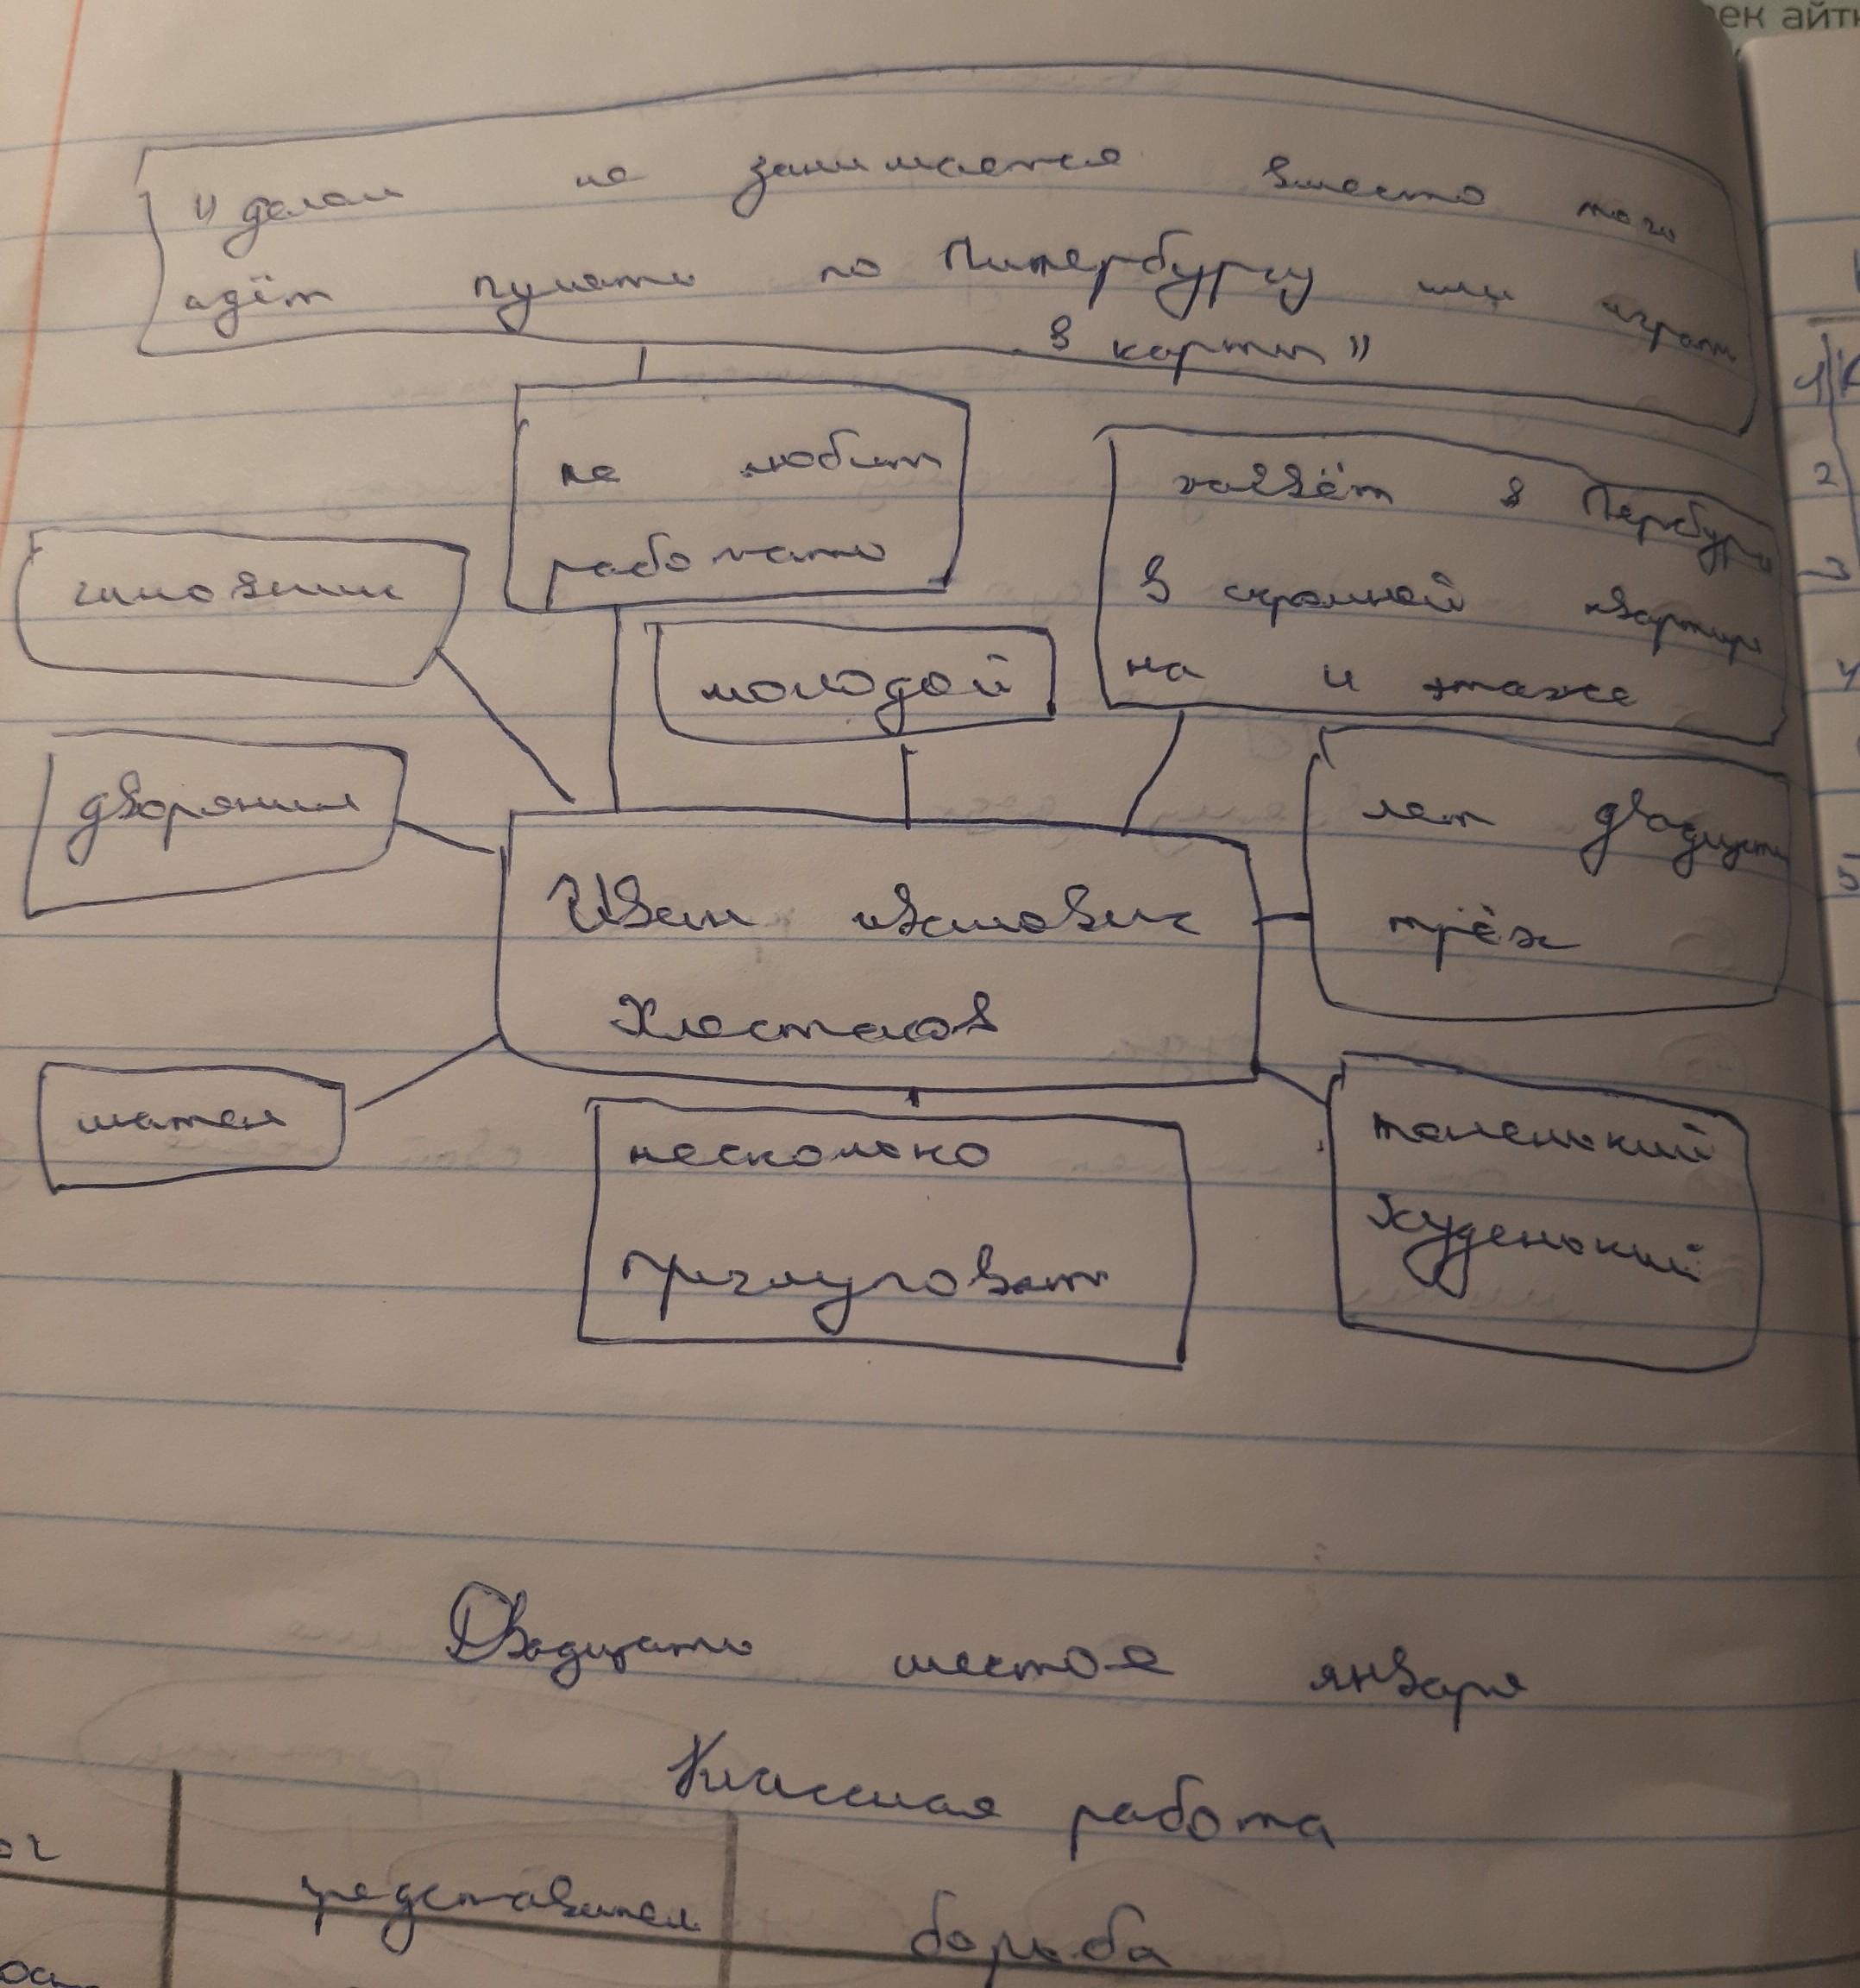 ек айтк
"делом не занимается вместо того
идёт гулять по Питербургу или играть
в карты"
не любит
работать
живёт в Пербурге
в скромной квартире
на 4 этаже
чиновник
молодой
дворянин
лет двадцати
трёх
Иван иванович
Хлестаков
шатен
несколько
приглуповат
тоненький
худенький
Двадцать шестое января
Классная работа
представители борьба